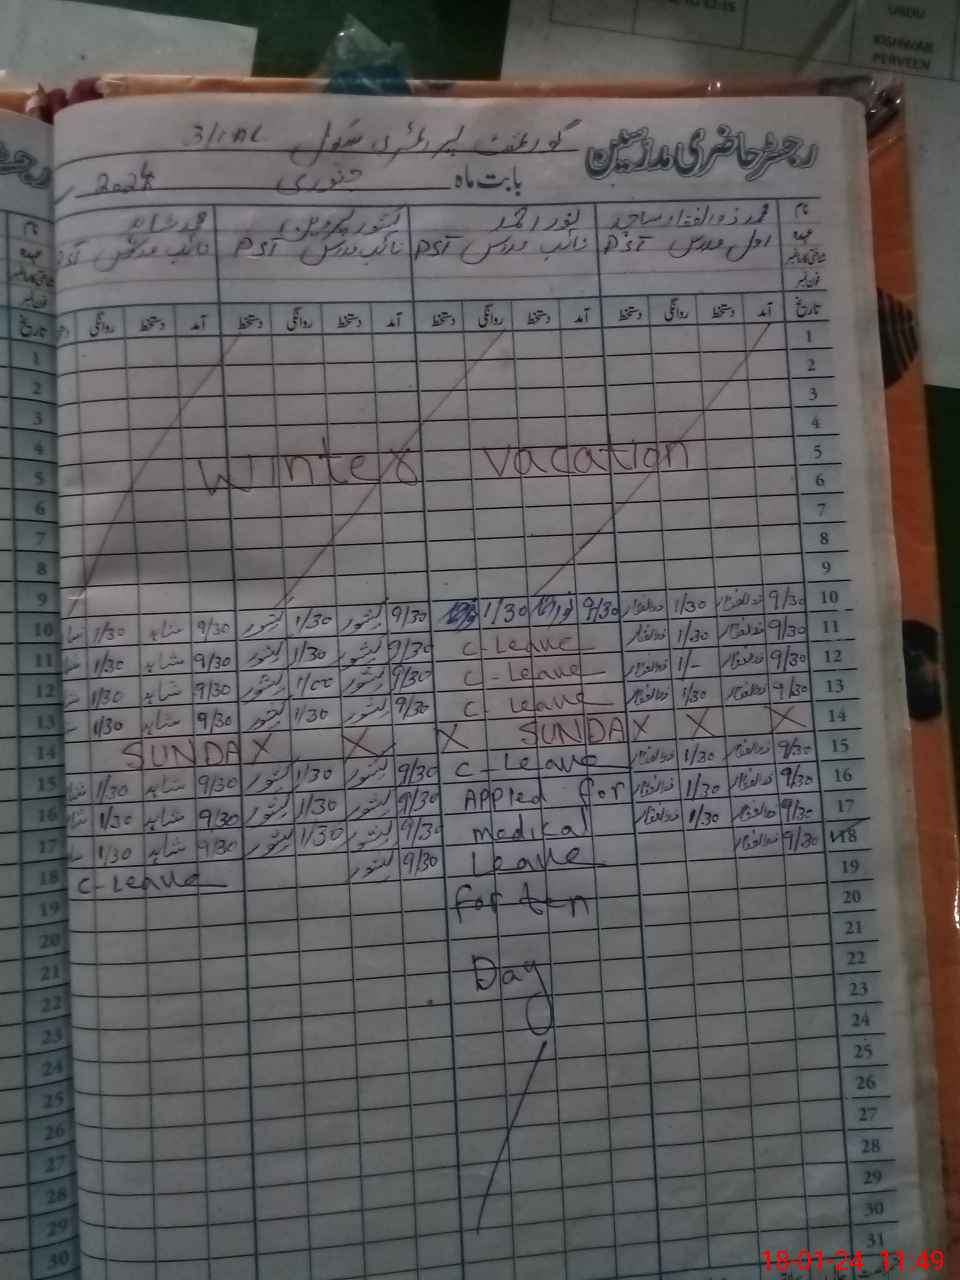 URDU
KISHWAR
PERVEEN
رجسٹر حاضری مدرسین گورنمنٹ پرائمری سکول 3/1AL
بابت ماہ جنوری 2024
نام محمد ذوالفقار ساجد نور احمد کشور پروین محمد شاہد
عہدہ اول مدرس PST نائب مدرس PST نائب مدرس PST نائب مدرس PST
شناختی کارڈ نمبر
فون نمبر
تاریخ آمد دستخط روانگی دستخط آمد دستخط روانگی دستخط آمد دستخط روانگی دستخط آمد دستخط روانگی دستخط
1
2
3
4
5 Winter vacation
6
7
8
9
10 9/30 ذوالفقار 1/30 ذوالفقار 9/30 نوراحمد 1/30 9/30 کشور 1/30 کشور 9/30 شاہد 1/30
11 9/30 ذوالفقار 1/30 ذوالفقار C-Leave 9/30 کشور 1/30 کشور 9/30 شاہد 1/30
12 9/30 ذوالفقار 1/- ذوالفقار C-Leave 9/30 کشور 1/00 کشور 9/30 شاہد 1/30
13 9/30 ذوالفقار 1/30 ذوالفقار C-Leave 9/30 کشور 1/30 کشور 9/30 شاہد 1/30
14 SUNDAY X X X SUNDAY X X
15 9/30 ذوالفقار 1/30 ذوالفقار C-Leave 9/30 کشور 1/30 کشور 9/30 شاہد 1/30
16 9/30 ذوالفقار 1/30 ذوالفقار Appled for 9/30 کشور 1/30 کشور 9/30 شاہد 1/30
17 9/30 ذوالفقار 1/30 ذوالفقار medical 9/30 کشور 1/30 کشور 9/30 شاہد 1/30
18 9/30 ذوالفقار Leave 9/30 کشور C-Leave
19
20 for ten
21
22 Day
23
24
25
26
27
28
29
30
31
18-01-24 11:49